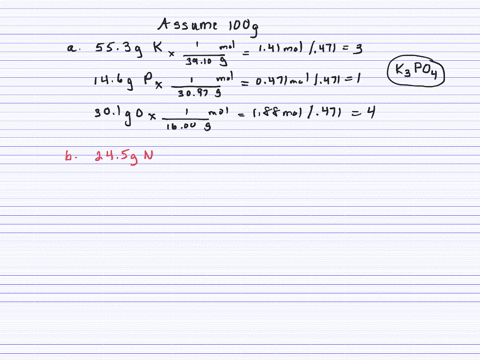 Assume 100g
a. 55.3g K × 1 mol / 39.10 g = 1.41 mol /.471 = 3
14.6g P × 1 mol / 30.97 g = 0.471 mol /.471 = 1
K3PO4
30.1g O × 1 mol / 16.00 g = 1.88 mol /.471 = 4
b. 24.5g N